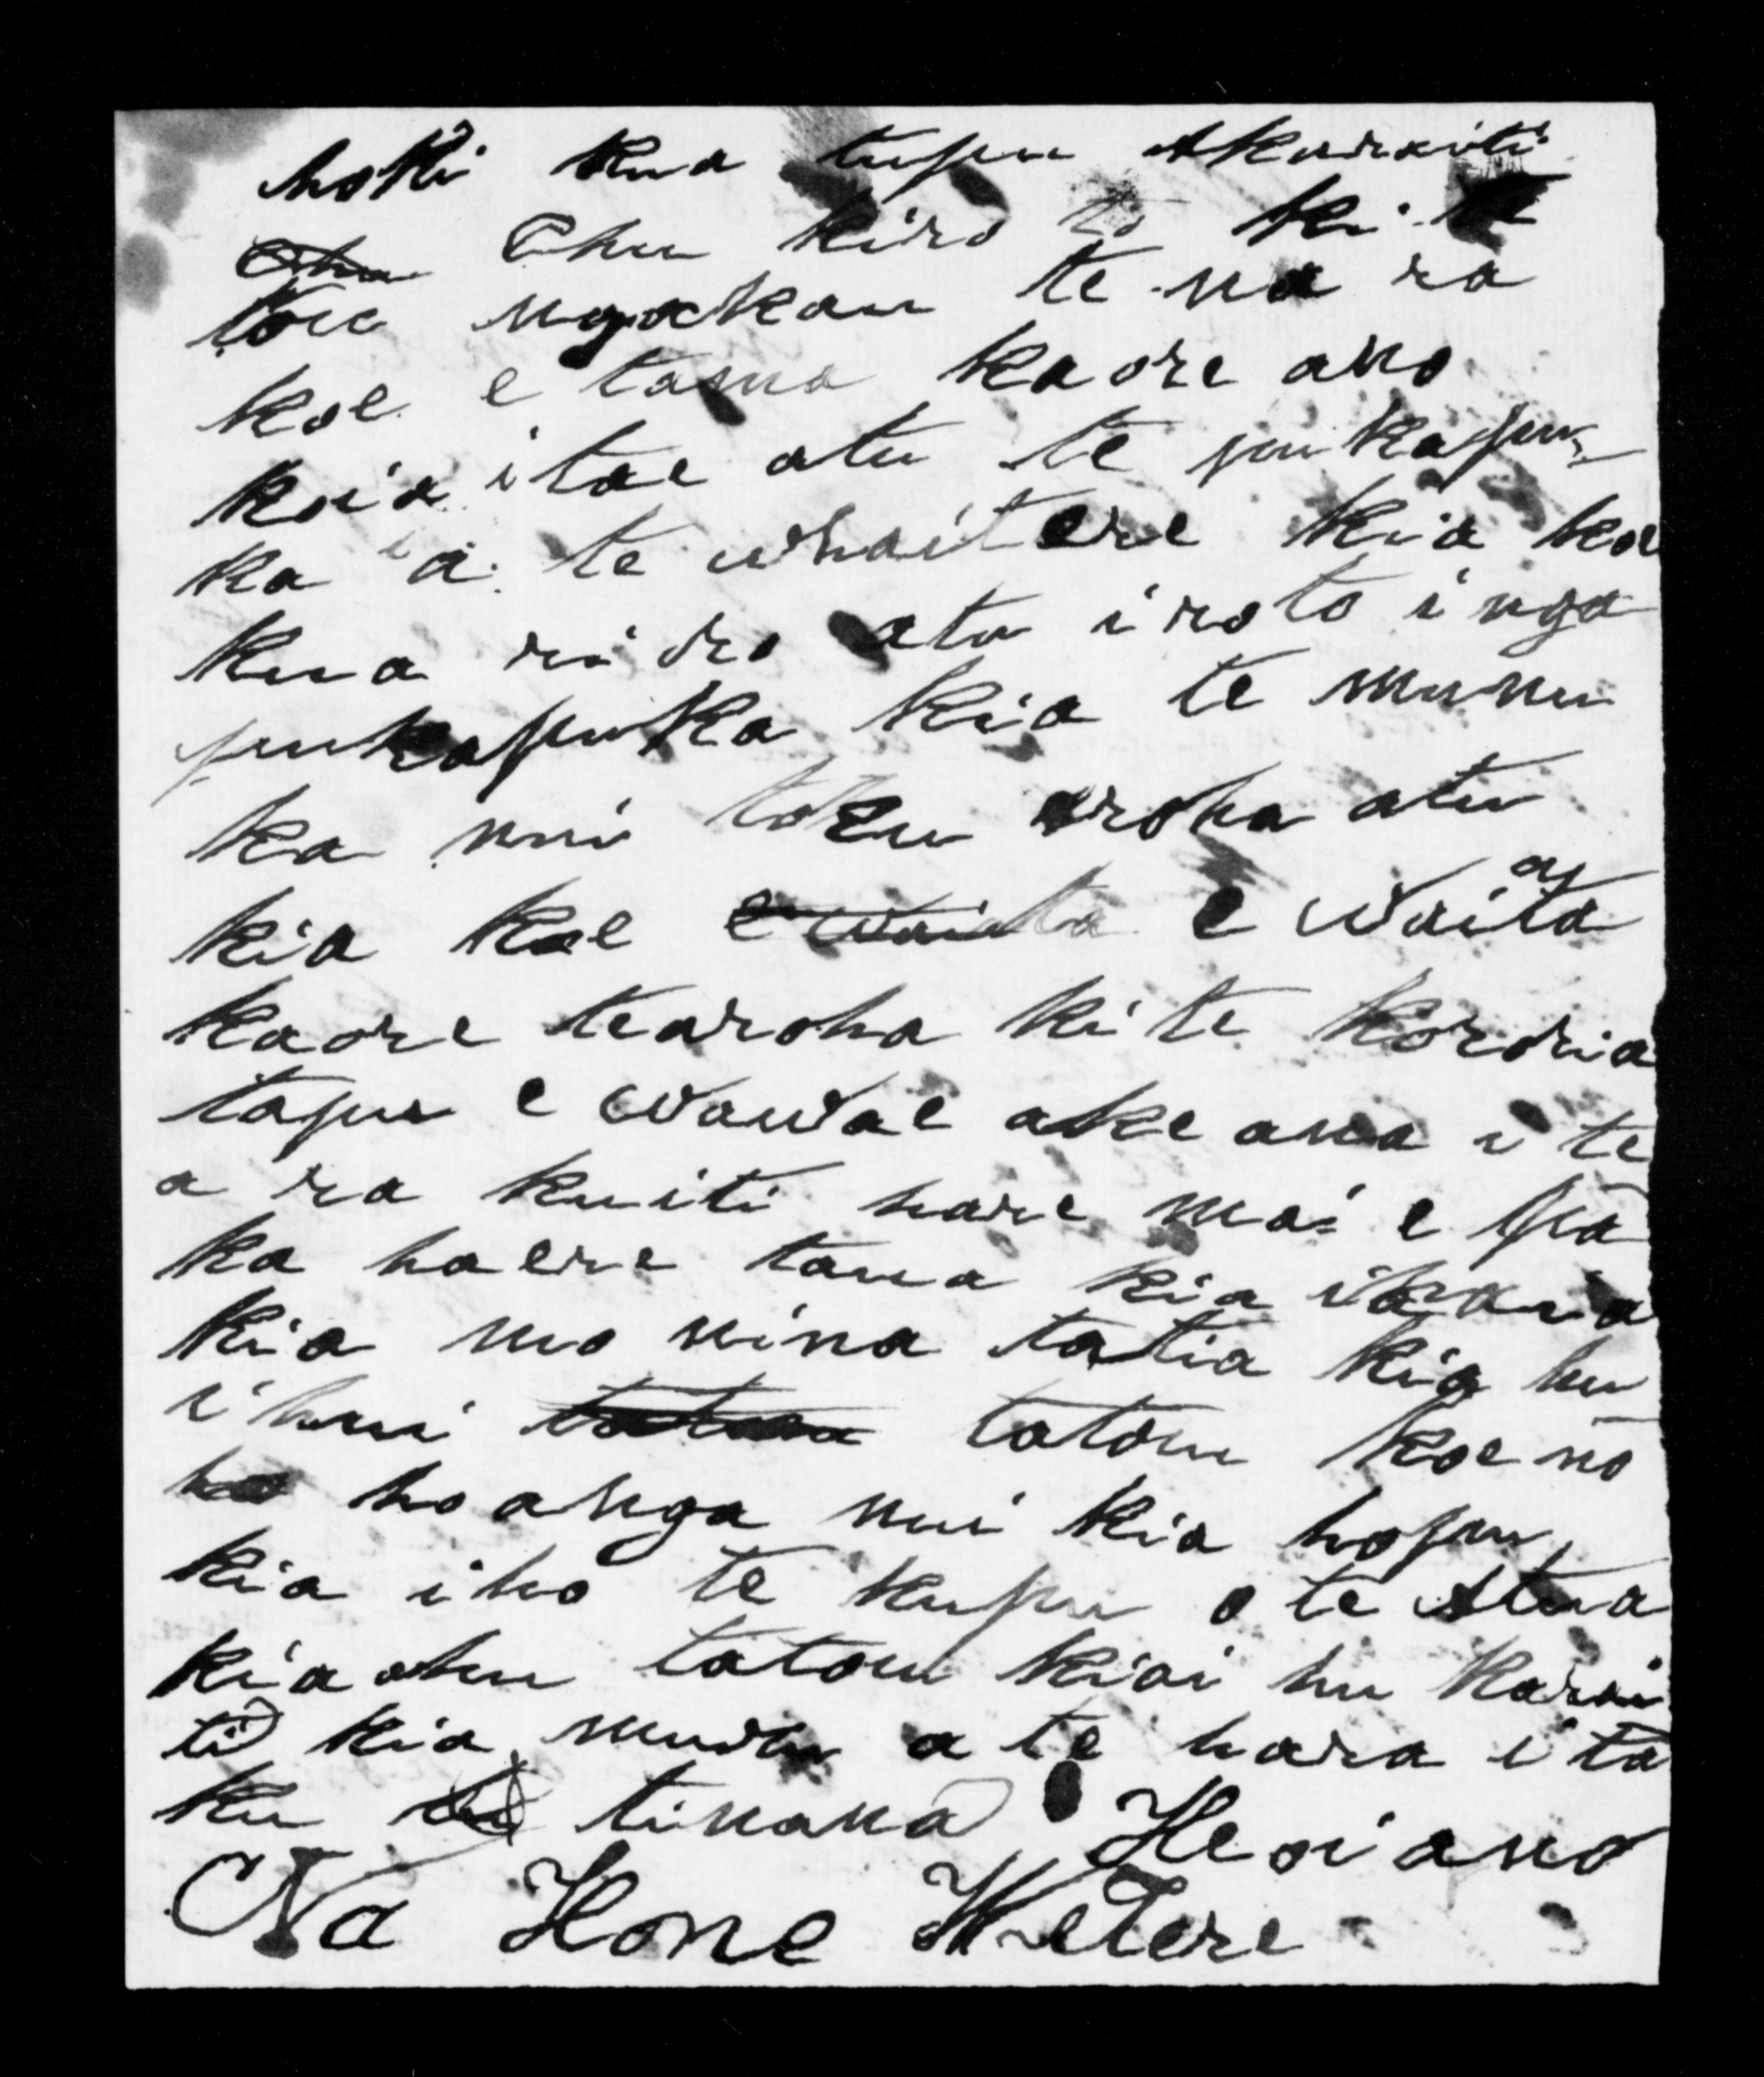 hoki kua tupu Akaraiti
Ehu Ehu kiro to ki te
tou ngakau te na ra
koe e tama kaore ano
koia i tae atu te pukapu-
ka a te whaitere kia koe
kua riro atu i roto i nga
pukapuka kia te munu
ka nui toku aroha atu
kia koe e waiata e Waiata
kaore te aroha ki te kororia
tapu e wawae ake ana i te
a ra kuiti hare mai e pa
ka haere taua kia
kia mo nina tatia kia hu
i hui tatou koe no
ho anga nui kia hopu
kia iho te kupu o te Atua
kia ohu tatou kiai hu karai
ti kia muru a te hara i ta
ku tinana Heoi ano
Na Hone Wetere